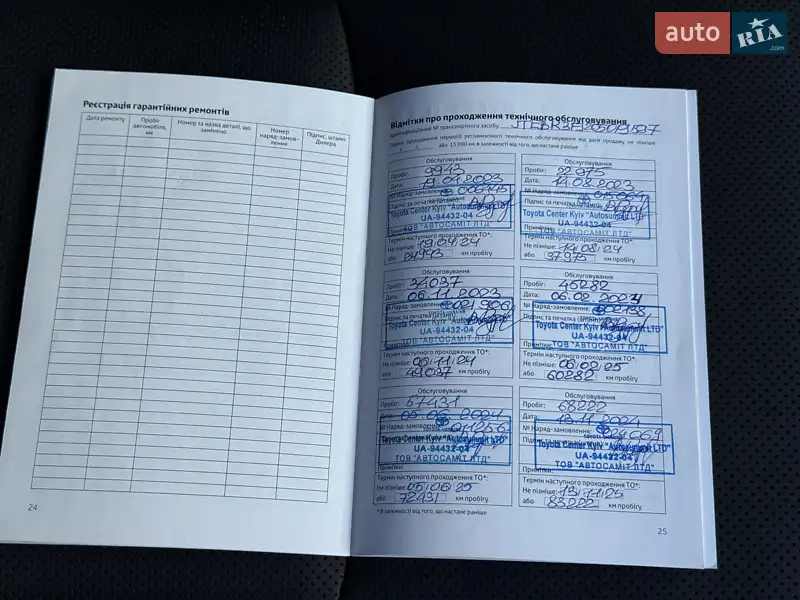 auto RIA.com
Реєстрація гарантійних ремонтів
Дата ремонту
Пробіг автомобіля, км
Номер та назва деталі, що замінено
Номер наряд-замовлення
Підпис, штамп Дилера
24
Відмітки про проходження технічного обслуговування
№ транспортного засобу
або 15 000 км в залежності від того, що настане раніше
Обслуговування
Пробіг: 9943
Дата: 19.04.2023
№ Наряд-замовлення:
Підпис та печатка
Toyota Center Kyiv "Autosummit LTD"
UA-94432-04
ТОВ "АВТОСАМІТ ЛТД"
Термін наступного проходження ТО*:
Не пізніше: 19/04/24
або 24943 км пробігу
Обслуговування
Пробіг: 22975
Дата: 14.08.2023
№ Наряд-замовлення:
Підпис та печатка
Toyota Center Kyiv "Autosummit LTD"
UA-94432-04
ТОВ "АВТОСАМІТ ЛТД"
Термін наступного проходження ТО*:
Не пізніше: 14/08/24
або 37975 км пробігу
Обслуговування
Пробіг: 34037
Дата: 06.11.2023
№ Наряд-замовлення: 021906
Підпис та печатка
Toyota Center Kyiv "Autosummit LTD"
UA-94432-04
ТОВ "АВТОСАМІТ ЛТД"
Термін наступного проходження ТО*:
Не пізніше: 06/11/24
або 49037 км пробігу
Обслуговування
Пробіг: 45282
Дата: 06.02.2024
№ Наряд-замовлення:
Підпис та печатка
Toyota Center Kyiv "Autosummit LTD"
UA-94432-04
Примітки: ТОВ "АВТОСАМІТ ЛТД"
Термін наступного проходження ТО*:
Не пізніше: 06/02/25
або 60282 км пробігу
Обслуговування
Пробіг: 57431
Дата: 05.06.2024
№ Наряд-замовлення: 011256
Toyota Center Kyiv "Autosummit LTD"
UA-94432-04
ТОВ "АВТОСАМІТ ЛТД"
Примітки:
Термін наступного проходження ТО*:
Не пізніше: 05/06/25
або 72431 км пробігу
Обслуговування
Пробіг: 68222
Дата: 13.11.2024
№ Наряд-замовлення: 024069
Toyota Center Kyiv "Autosummit LTD"
UA-94432-04
ТОВ "АВТОСАМІТ ЛТД"
Примітки:
Термін наступного проходження ТО*:
Не пізніше: 13/11/25
або 83222 км пробігу
* В залежності від того, що настане раніше
25